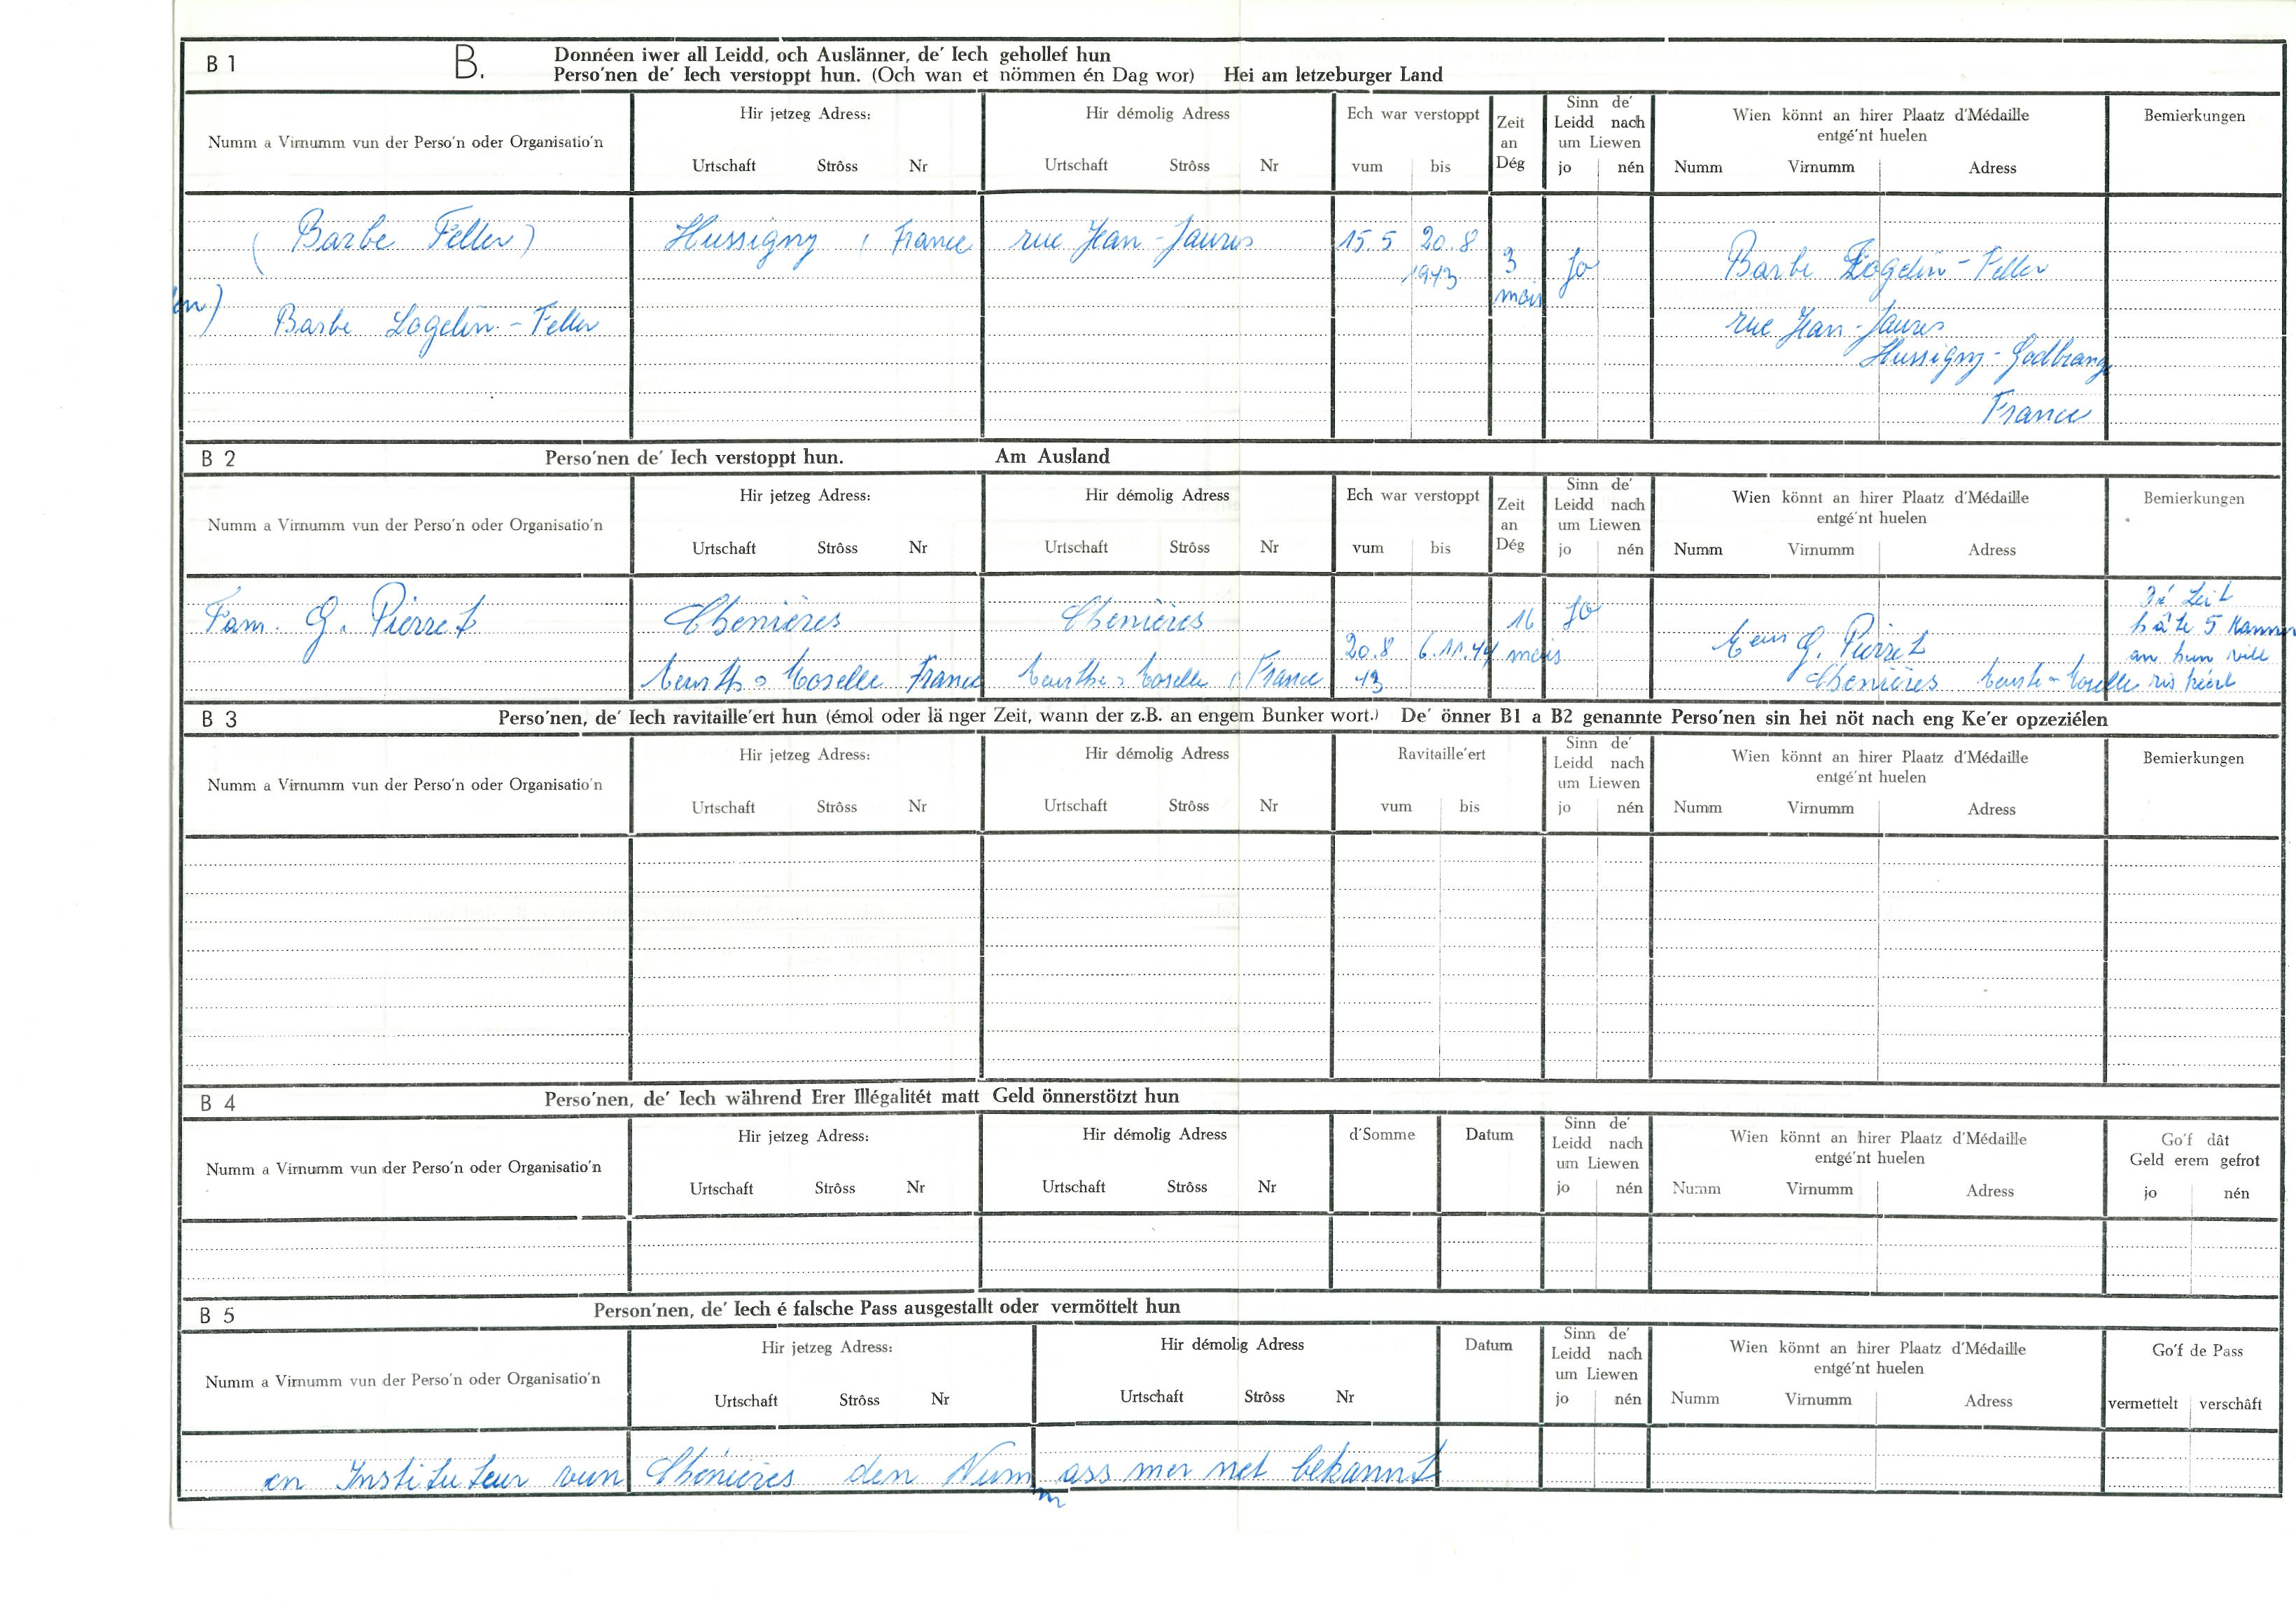 B 1
B.
Donnéen iwer all Leidd, och Auslänner, de' Iech gehollef hun
Perso'nen de' Iech verstoppt hun. (Och wan et nömmen én Dag wor) Hei am letzeburger Land
Numm a Virnumm vun der Perso'n oder Organisatio'n
Hir jetzeg Adress:
Urtschaft Strôss Nr
Hir démolig Adress
Urtschaft Strôss Nr
Ech war verstoppt
vum bis
Zeit an Dég
Sinn de' Leidd nach um Liewen
jo nén
Wien könnt an hirer Plaatz d'Médaille entgé'nt huelen
Numm Virnumm Adress
Bemierkungen
(Barbe Feller) Hussigny, France rue Jean-Jaures 15.5 20.8
1943 3 mois jo Barbe Logelin-Feller
Barbe Logelin-Feller rue Jean-Jaures
Hussigny-Godbrange
France
B 2
Perso'nen de' Iech verstoppt hun. Am Ausland
Numm a Virnumm vun der Perso'n oder Organisatio'n
Hir jetzeg Adress:
Urtschaft Strôss Nr
Hir démolig Adress
Urtschaft Strôss Nr
Ech war verstoppt
vum bis
Zeit an Dég
Sinn de' Leidd nach um Liewen
jo nén
Wien könnt an hirer Plaatz d'Médaille entgé'nt huelen
Numm Virnumm Adress
Bemierkungen
Fam. G. Pierret Chenières Chenières 16 jo
20.8 6.11.44 mois G. Pierret
Moselle France Meurthe-Moselle, France 43 Chenières
Leit
5 Kanner
an hun vill
B 3
Perso'nen, de' Iech ravitaille'ert hun (émol oder lä nger Zeit, wann der z.B. an engem Bunker wort.) De' önner B1 a B2 genannte Perso'nen sin hei nöt nach eng Ke'er opzeziélen
Numm a Virnumm vun der Perso'n oder Organisatio'n
Hir jetzeg Adress:
Urtschaft Strôss Nr
Hir démolig Adress
Urtschaft Strôss Nr
Ravitaille'ert
vum bis
Sinn de' Leidd nach um Liewen
jo nén
Wien könnt an hirer Plaatz d'Médaille entgé'nt huelen
Numm Virnumm Adress
Bemierkungen
B 4
Perso'nen, de' Iech während Erer Illégalitét matt Geld önnerstötzt hun
Numm a Virnumm vun der Perso'n oder Organisatio'n
Hir jetzeg Adress:
Urtschaft Strôss Nr
Hir démolig Adress
Urtschaft Strôss Nr
d'Somme
Datum
Sinn de' Leidd nach um Liewen
jo nén
Wien könnt an hirer Plaatz d'Médaille entgé'nt huelen
Numm Virnumm Adress
Go'f dât Geld erem gefrot
jo nén
B 5
Person'nen, de' Iech é falsche Pass ausgestallt oder vermöttelt hun
Numm a Virnumm vun der Perso'n oder Organisatio'n
Hir jetzeg Adress:
Urtschaft Strôss Nr
Hir démolig Adress
Urtschaft Strôss Nr
Datum
Sinn de' Leidd nach um Liewen
jo nén
Wien könnt an hirer Plaatz d'Médaille entgé'nt huelen
Numm Virnumm Adress
Go'f de Pass
vermettelt verschâft
en Instituteur vun Chénières den Numm ass mer net bekannt